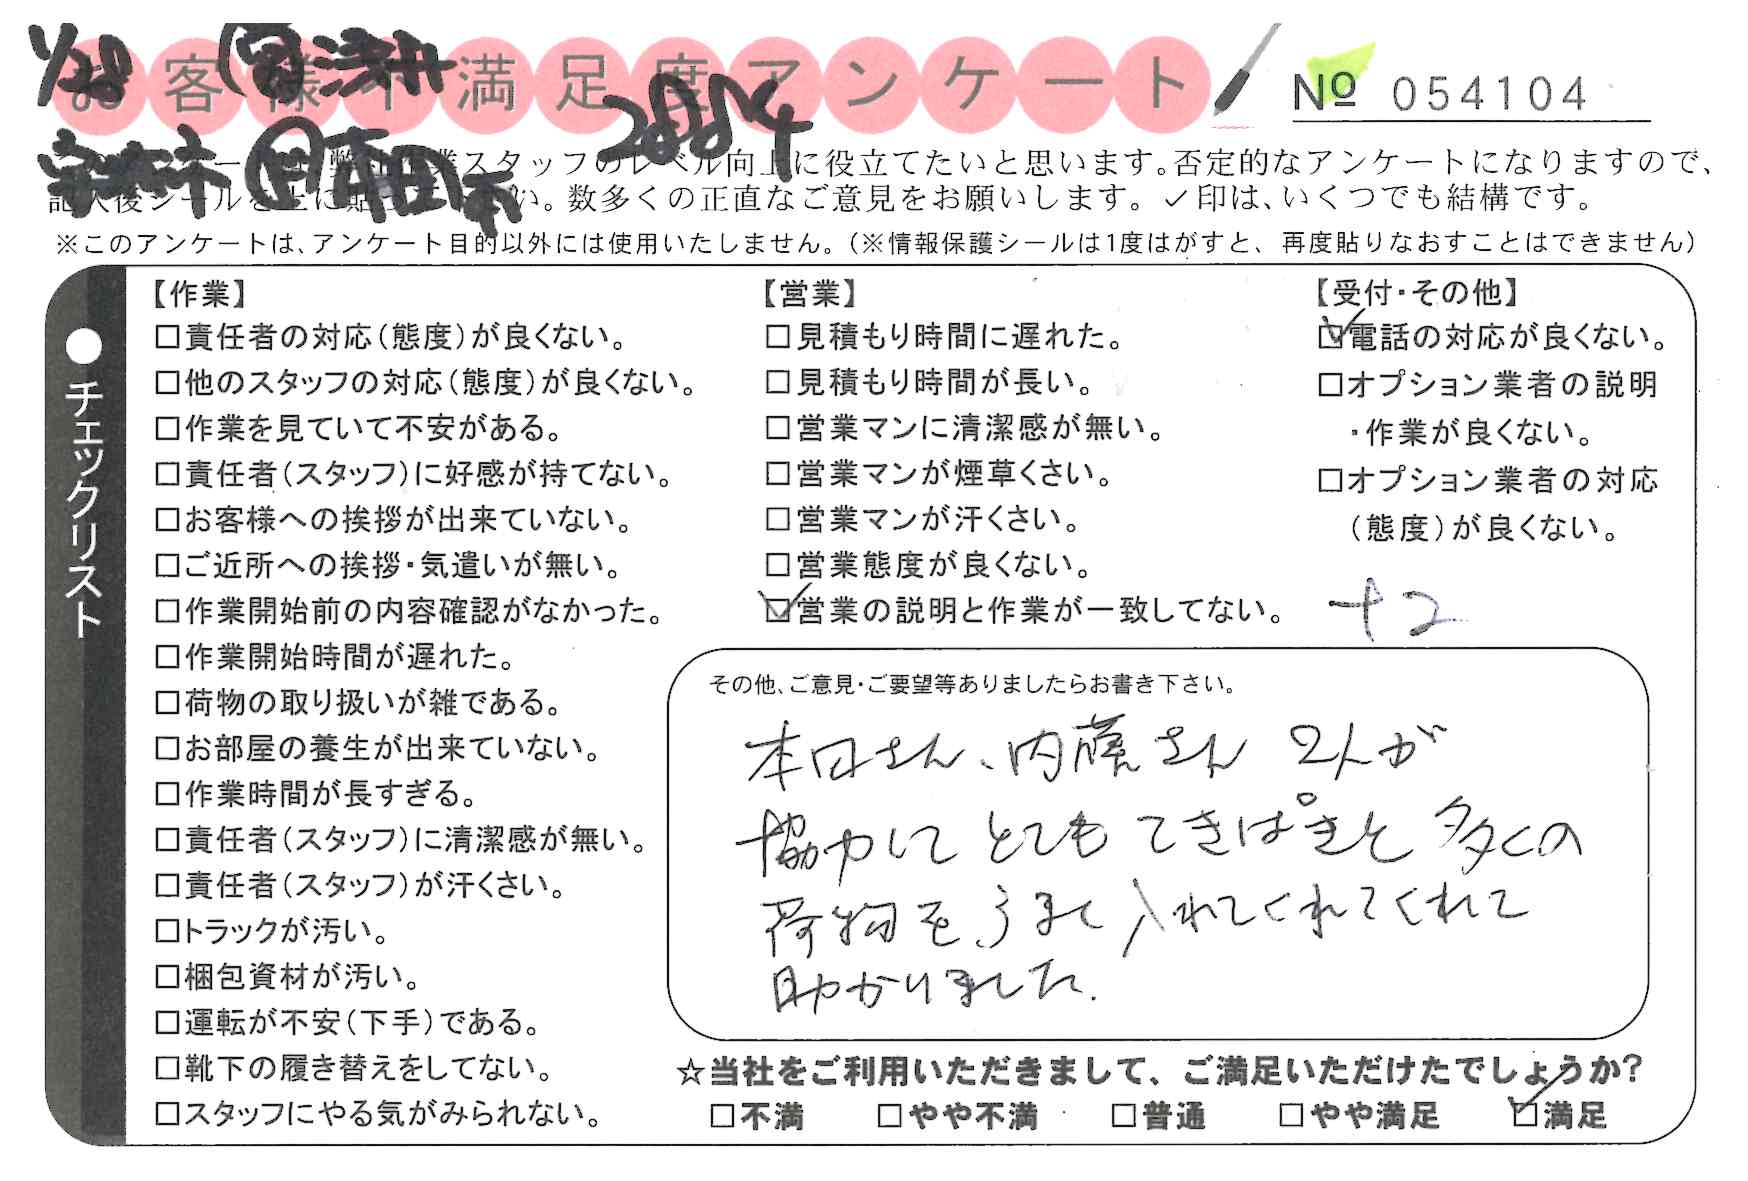 1/28
お客様不満足度アンケート
№ 054104
2884
スタッフのレベル向上に役立てたいと思います。否定的なアンケートになりますので、
い。数多くの正直なご意見をお願いします。✓印は、いくつでも結構です。
※このアンケートは、アンケート目的以外には使用いたしません。(※情報保護シールは1度はがすと、再度貼りなおすことはできません)
●チェックリスト
【作業】
□責任者の対応(態度)が良くない。
□他のスタッフの対応(態度)が良くない。
□作業を見ていて不安がある。
□責任者(スタッフ)に好感が持てない。
□お客様への挨拶が出来ていない。
□ご近所への挨拶・気遣いが無い。
□作業開始前の内容確認がなかった。
□作業開始時間が遅れた。
□荷物の取り扱いが雑である。
□お部屋の養生が出来ていない。
□作業時間が長すぎる。
□責任者(スタッフ)に清潔感が無い。
□責任者(スタッフ)が汗くさい。
□トラックが汚い。
□梱包資材が汚い。
□運転が不安(下手)である。
□靴下の履き替えをしてない。
□スタッフにやる気がみられない。
【営業】
□見積もり時間に遅れた。
□見積もり時間が長い。
□営業マンに清潔感が無い。
□営業マンが煙草くさい。
□営業マンが汗くさい。
□営業態度が良くない。
☑営業の説明と作業が一致してない。
【受付・その他】
☑電話の対応が良くない。
□オプション業者の説明
・作業が良くない。
□オプション業者の対応
(態度)が良くない。
+2
その他、ご意見・ご要望等ありましたらお書き下さい。
本田さん、内藤さん 2人が
協力して とても てきぱきと 多くの
荷物を うまく 入れてくれてくれて
助かりました.
☆当社をご利用いただきまして、ご満足いただけたでしょうか?
□不満 □やや不満 □普通 □やや満足 ☑満足